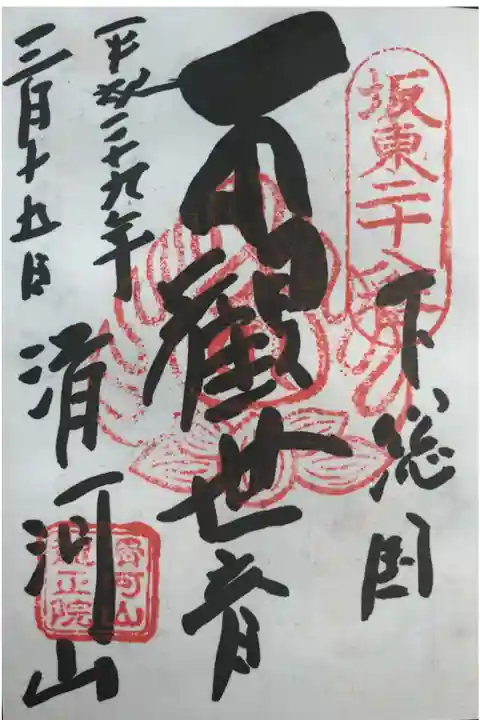 坂東二十八番
下総国
観世音
平成二十九年
三月十五日
滑河山
滑河山
龍正院